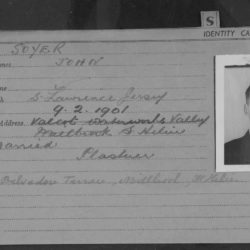 S
IDENTITY CA
SOYER
JOHN
S. Lawrence Jersey
9. 2. 1901
Address. Vallot Waterworks Valley
Wellbrook St Helier
Married
Plasterer
Belvedere Terrace, Millbrook, St Helier